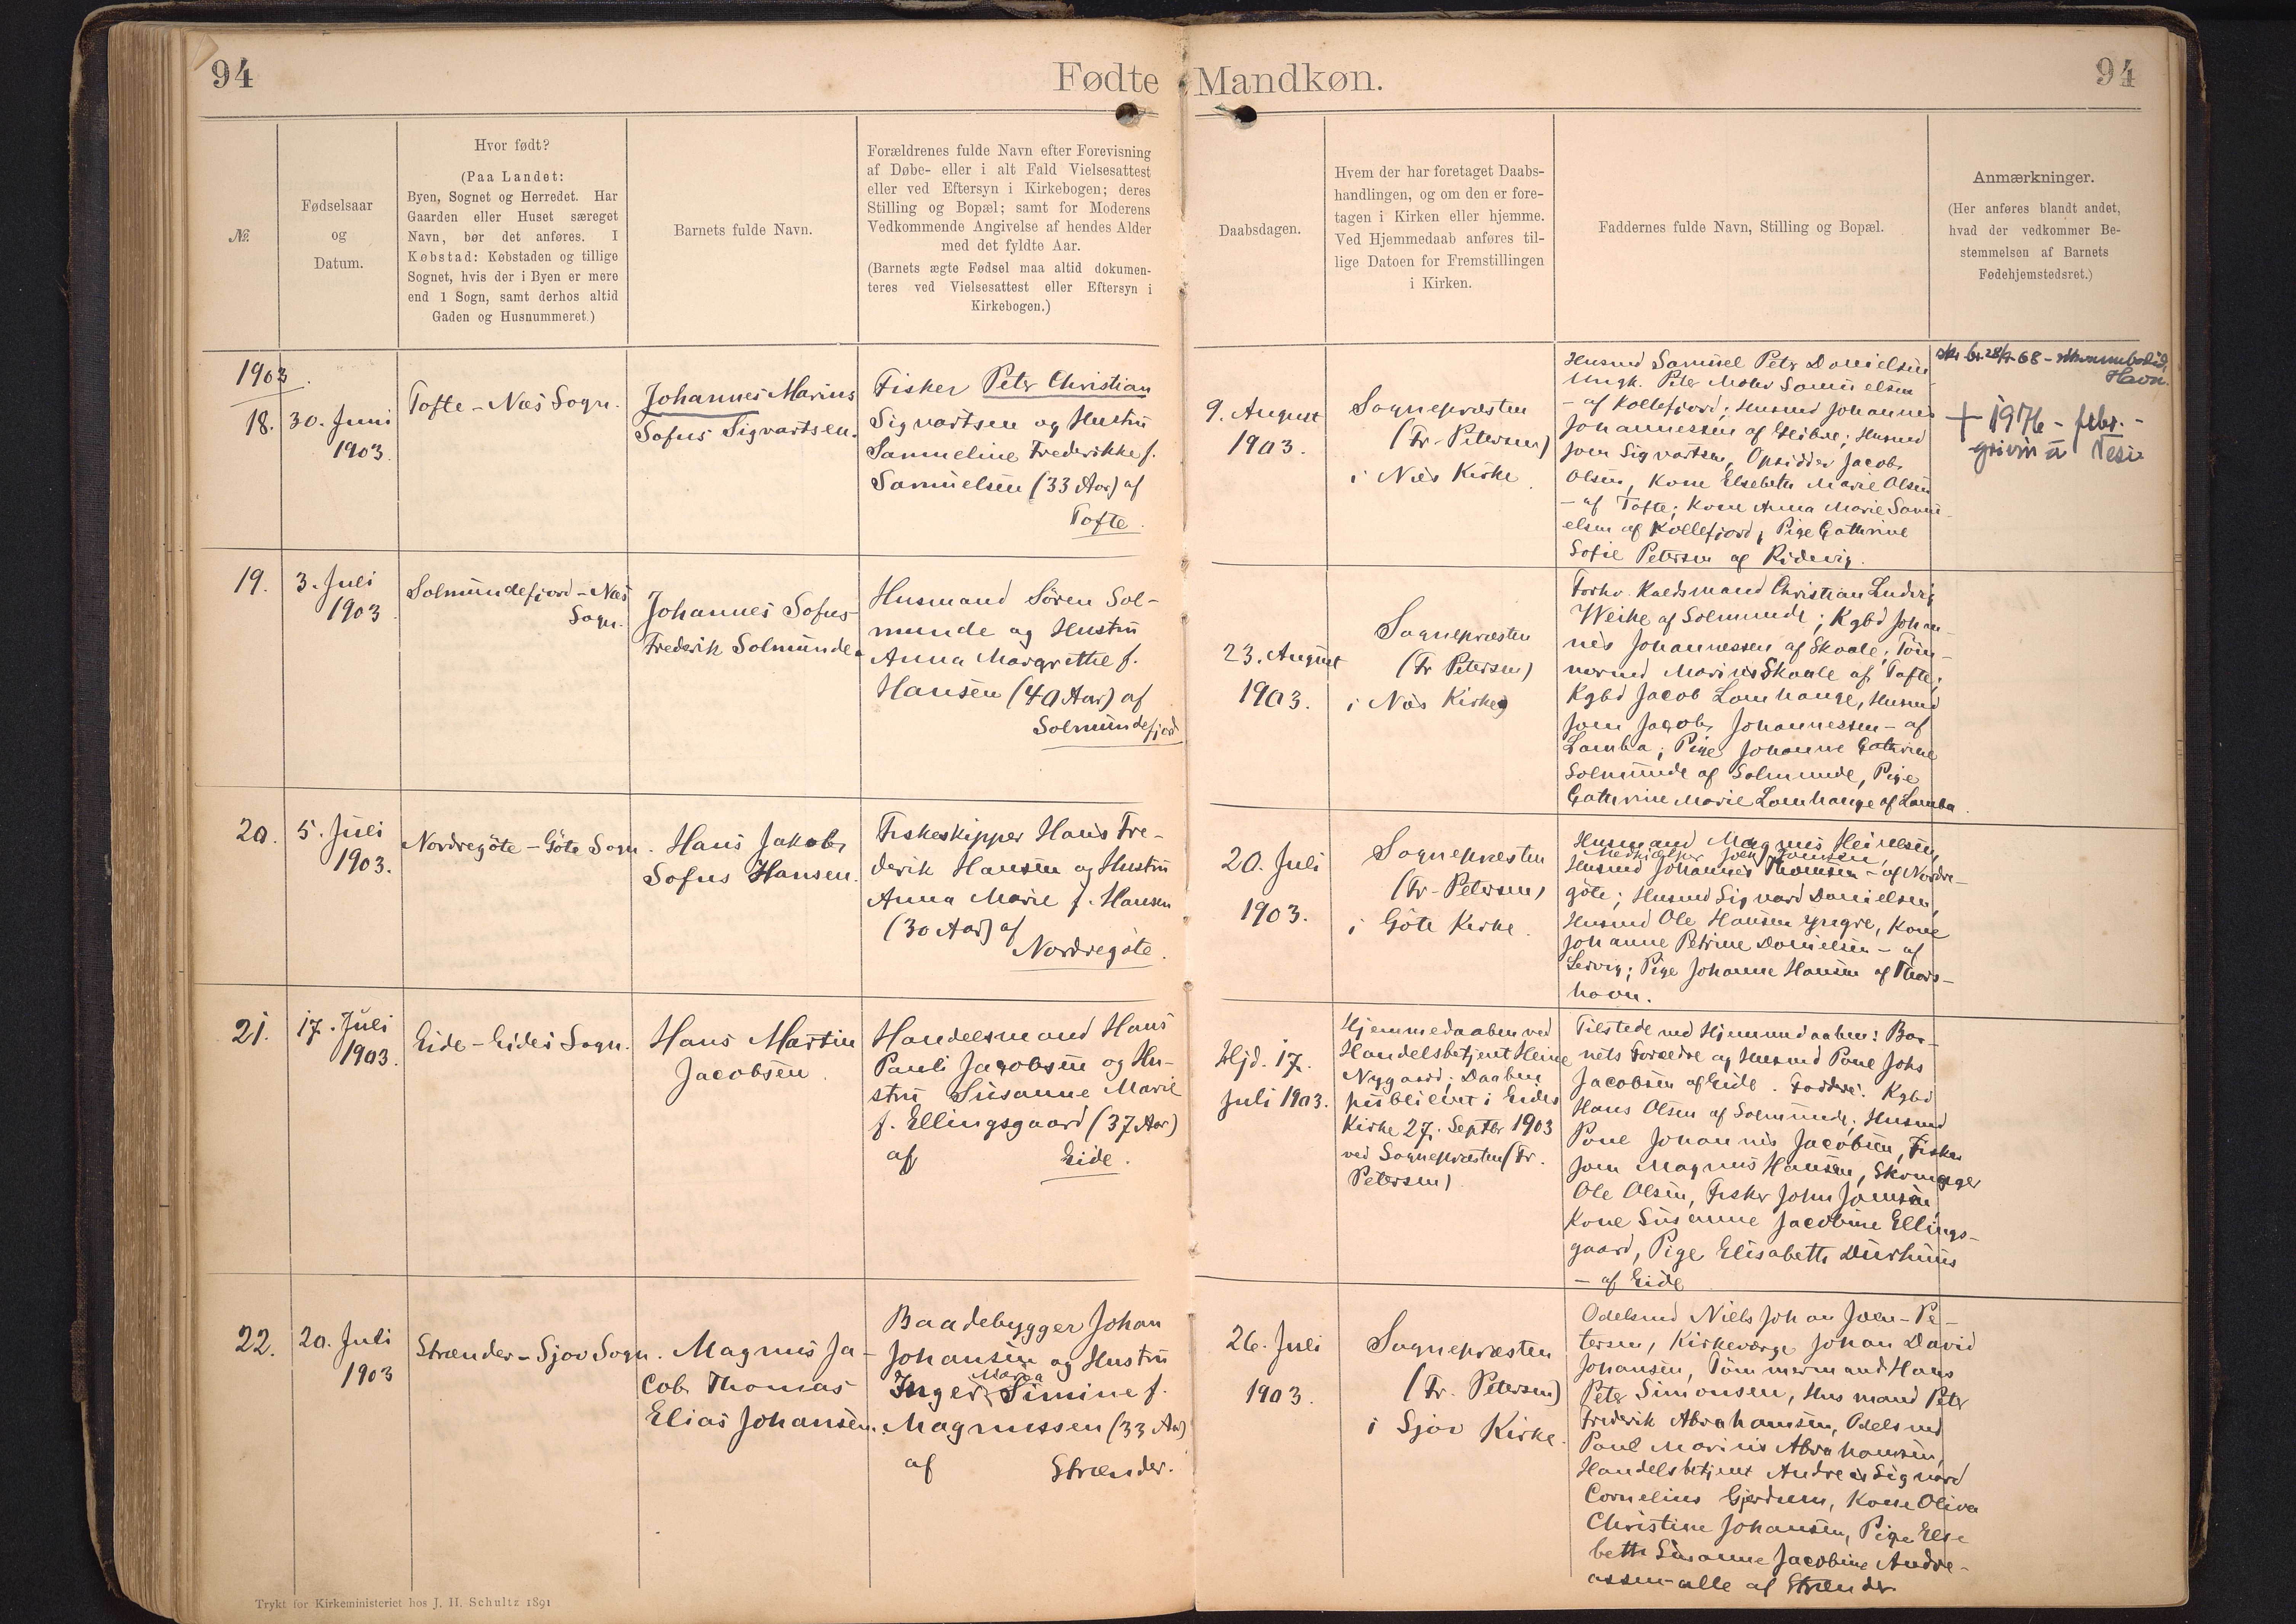 94
Fødte Mandkøn.
94
№.
Fødselsaar
og
Datum.
Hvor født?
(Paa Landet:
Byen, Sognet og Herredet. Har
Gaarden eller Huset særeget
Navn, bør det anføres. I
Købstad: Købstaden og tillige
Sognet, hvis der i Byen er mere
end 1 Sogn, samt derhos altid
Gaden og Husnummeret.)
Barnets fulde Navn.
Forældrenes fulde Navn efter Forevisning
af Døbe- eller i alt Fald Vielsesattest
eller ved Eftersyn i Kirkebogen; deres
Stilling og Bopæl; samt for Moderens
Vedkommende Angivelse af hendes Alder
med det fyldte Aar.
(Barnets ægte Fødsel maa altid dokumen-
teres ved Vielsesattest eller Eftersyn i
Kirkebogen.)
Daabsdagen.
Hvem der har foretaget Daabs-
handlingen, og om den er fore-
tagen i Kirken eller hjemme.
Ved Hjemmedaab anføres til-
lige Datoen for Fremstillingen
i Kirken.
Faddernes fulde Navn, Stilling og Bopæl.
Anmærkninger.
(Her anføres blandt andet,
hvad der vedkommer Be-
stemmelsen af Barnets
Fødehjemstedsret.)
1903.
18.
30. Juni
1903
Tofte - Næs Sogn.
Johannes Marius
Sofus Sigvartsen.
Fisker Peter Christian
Sigvartsen og Hustru
Sammeline Frederikke f.
Samuelsen (33 Aar) af
Tofte.
9. August
1903.
Sognepræsten
(Fr. Petersen)
i Næs Kirke.
Husmd Samuel Peter Danielsen
Ungk. Peter Mohr Samuelsen
- af Kollefjord; Husmd Johannes
Johannessen af Glibre; Husmd
Joen Sigvartsen, Opsidder Jacob
Olsen, Kone Elsebeth Marie Olsen
- af Tofte; Kone Anna Marie Samu-
elsen af Kollefjord, Pige Cathrine
Sofie Petersen af Ridevig.
28/7-68
Havn.
+ 1976 - febr. -
grivin á Nesi
19.
3. Juli
1903.
Solmundefjord - Næs
Sogn.
Johannes Sofus
Frederik Solmunde.
Husmand Sören Sol-
munde og Hustru
Anna Margrethe f.
Hansen (40 Aar) af
Solmundefjord
23. August
1903.
Sognepræsten
(Fr Petersen)
i Næs Kirke
Forhv. Raadsmand Christian Ludvig
Weihe af Solmunde; Kgbd Johan-
nes Johannessen af Skaale; Töm-
mermd Marius Skaale af Tofte;
Kgbd Jacob Lamhauge, Husmd
Joen Jacob Johannessen - af
Lamba; Pige Johanne Cathrine
Solmunde af Solmunde, Pige
Cathrine Marie Lamhauge af Lamba.
20.
5. Juli
1903.
Nordregöte - Göte Sogn.
Hans Jakob
Sofus Hansen.
Fiskeskipper Hans Fre-
derik Hansen og Hustru
Anna Marie f. Hansen
(30 Aar) af
Nordregöte.
20. Juli
1903.
Sognepræsten
(Fr. Petersen)
i Göte Kirke.
Husmand Magnus Heinesen,
Medhjælper Joen Thomsen,
Husmd Johannes Thomsen - af Nordre-
göte; Husmd Sigvard Danielsen,
Husmd Ole Hansen yngre, Kone
Johanne Petrine Danielsen - af
Lervig; Pige Johanne Hansen af Thors-
havn.
21.
17. Juli
1903.
Eide - Eides Sogn.
Hans Martin
Jacobsen
Handelsmand Hans
Pauli Jacobsen og Hu-
stru Susanne Marie
f. Ellingsgaard (37 Aar)
af Eide.
Hjd. 17.
Juli 1903.
Hjemmedaaben ved
Handelsbetjent Heine
Nygaard; Daaben
publiceret i Eides
Kirke 27. Septbr 1903
ved Sognepræsten (Fr.
Petersen)
Tilstede ved Hjemmedaaben: Bar-
nets Forældre og Husmd Poul Johs
Jacobsen af Eide. Faddere: Kgbd
Hans Olsen af Solmunde; Husmd
Poul Johannes Jacobsen, Fisker
Joen Magnus Hansen, Skomager
Ole Olsen, Fisker John Joensen,
Kone Susanne Jacobine Ellings-
gaard, Pige Elisabeth Durhuus
- af Eide
22.
20. Juli
1903
Strænder - Sjov Sogn.
Magnus Ja-
cob Thomas
Elias Johansen.
Baadebygger Johan
Johansen og Hustru
Maria
Inger Simine f.
Magnussen (33 Aar)
af Strænder.
26. Juli
1903.
Sognepræsten
(Fr. Petersen)
i Sjov Kirke.
Odelsmd Niels Johan Joen-Pe-
tersen, Kirkeværge Johan David
Johansen, Tömmermand Hans
Peter Simonsen, Husmand Peter
Frederik Abrahamsen, Odelsmd
Poul Marius Abrahamsen,
Handelsbetjent Andreas Sigvard
Cornelius Gjerdum, Kone Oliva
Christine Johansen, Pige Else
beth Susanne Jacobine Andre-
assen - alle af Strænder
Trykt for Kirkeministeriet hos J. H. Schultz 1891